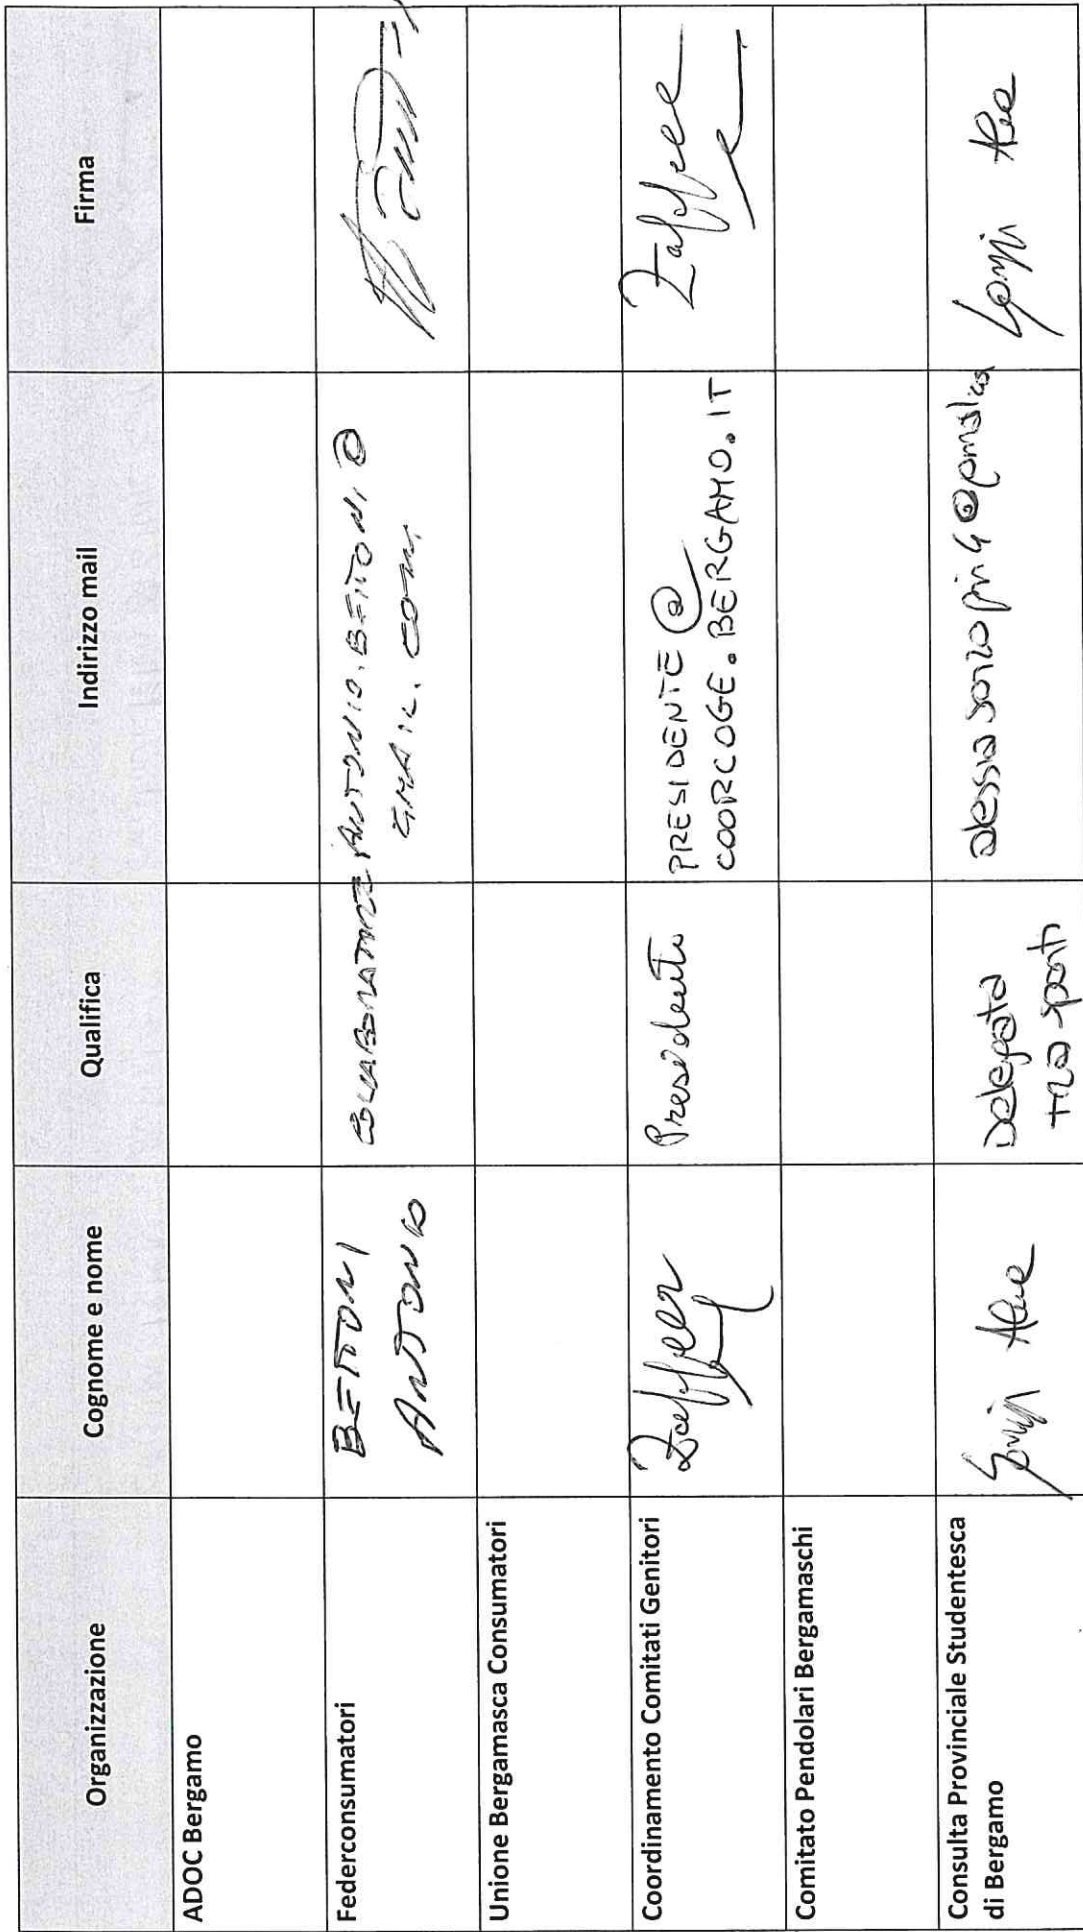 Organizzazione
Cognome e nome
Qualifica
Indirizzo mail
Firma
ADOC Bergamo
Federconsumatori
BETTONI
ANTONIO
COLLABORATORE
ANTONIO.BETTONI@
GMAIL.COM
Unione Bergamasca Consumatori
Coordinamento Comitati Genitori
Presidente
PRESIDENTE@
COORCOGE.BERGAMO.IT
Comitato Pendolari Bergamaschi
Consulta Provinciale Studentesca
di Bergamo
Delegata
trasporti